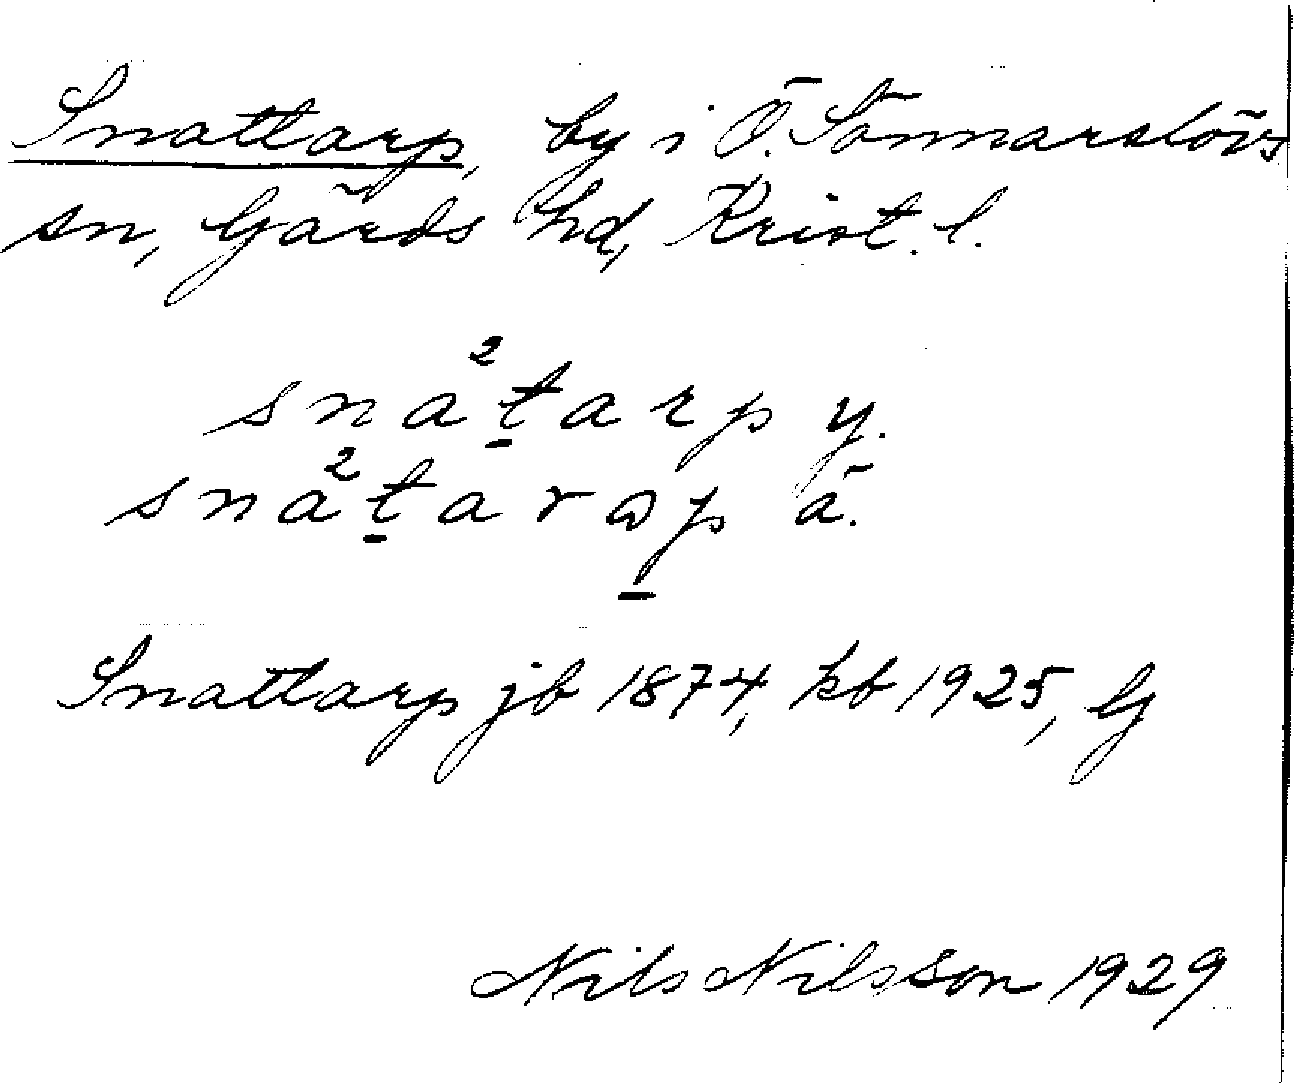 Snattarp, by i Ö. Sönnarslövs
sn, Gärds hd, Krist. l.
sna²tarp y.
sna²tarap ä.
Snattarp jb 1874, kb 1925, G
Nils Nilsson 1929